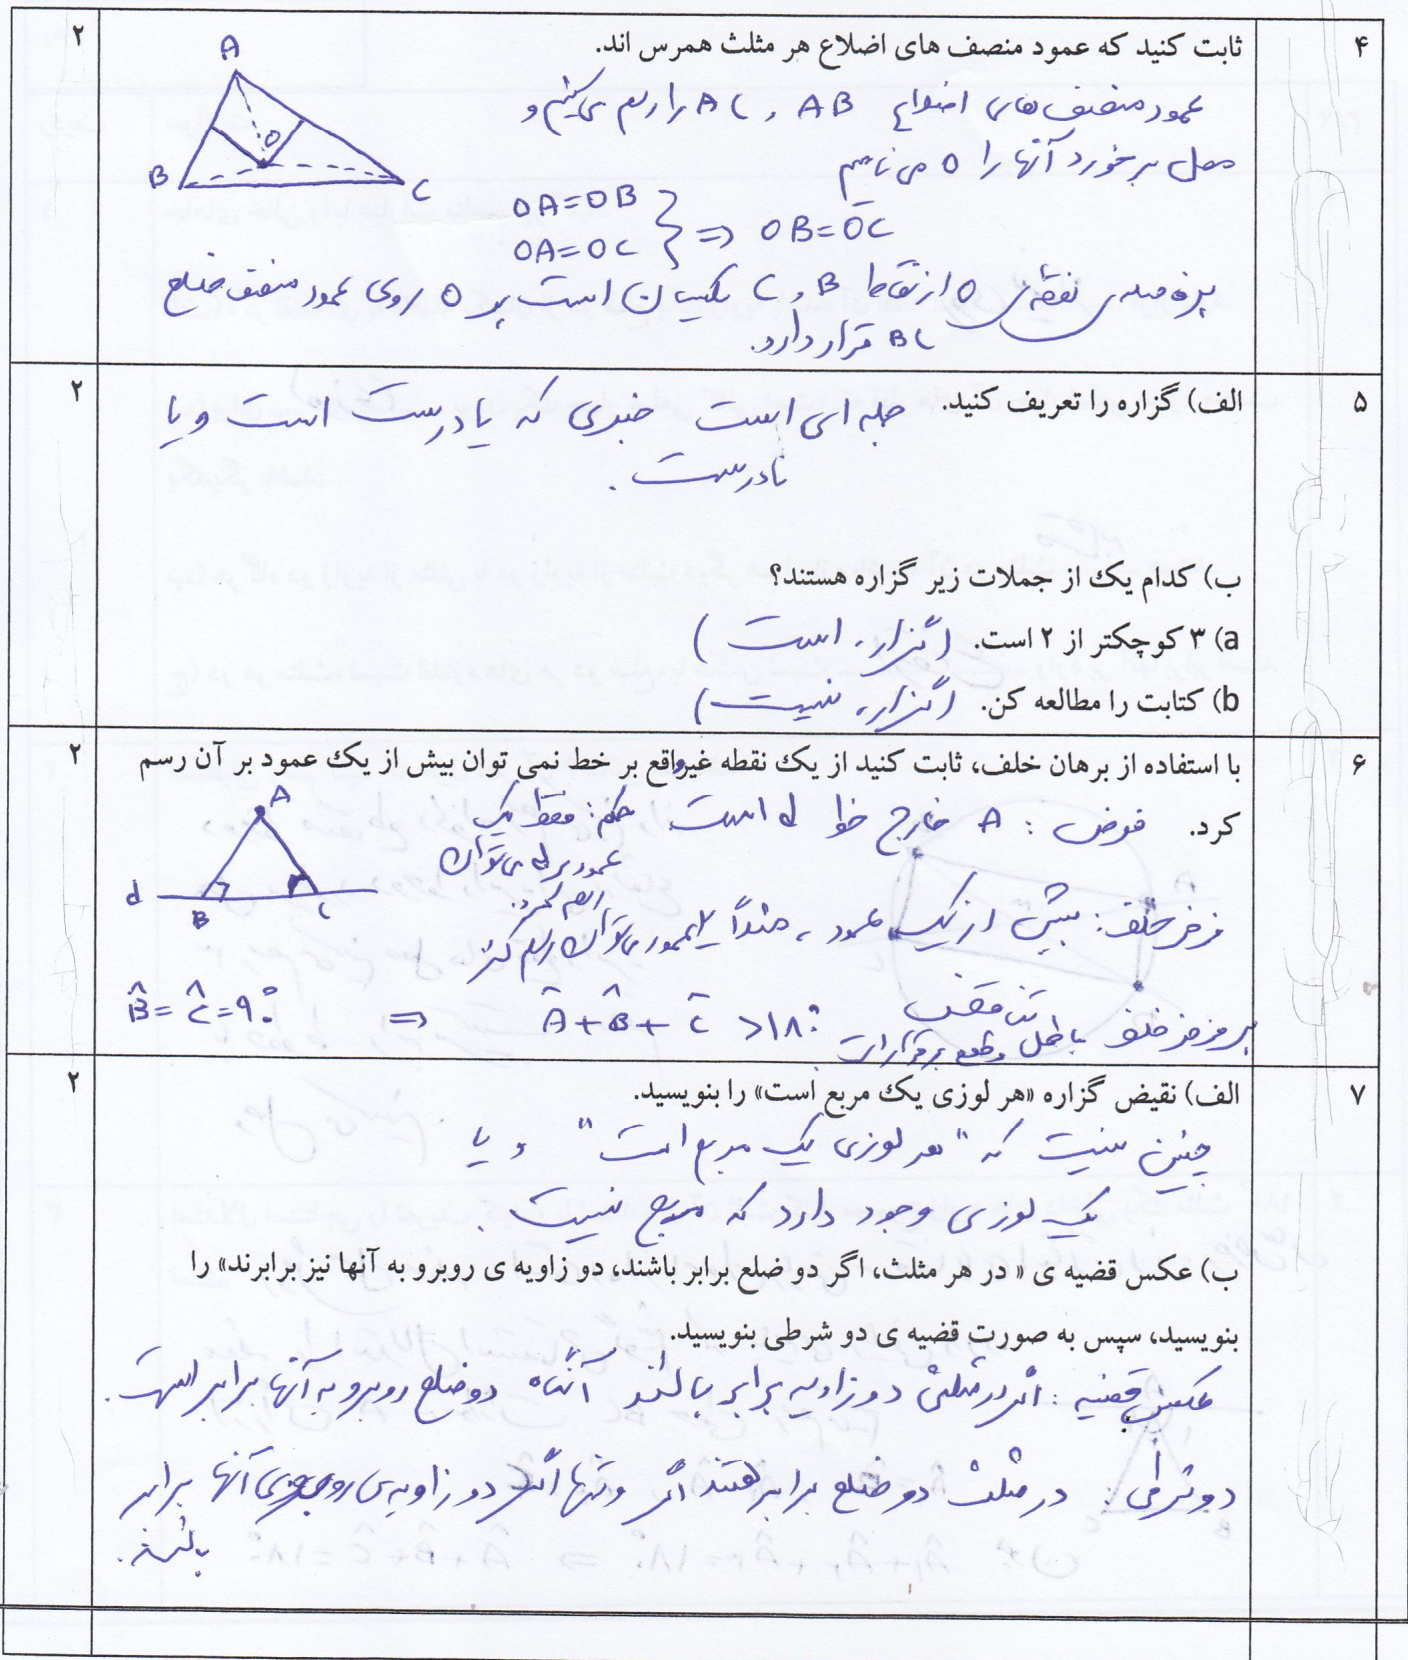 ۴ ثابت کنید که عمود منصف های اضلاع هر مثلث همرس اند. ۲
عمود منصف های اضلاع AB و AC را رسم می کنیم و
محل برخورد آنها را O می نامیم
A
B
C
O
OA=OB
OA=OC } => OB=OC
نقطه ی O از نقاط B و C یکسان است پس O روی عمود منصف ضلع
BC قرار دارد.
۵ الف) گزاره را تعریف کنید. جمله ای است خبری که یا درست است و یا ۲
نادرست.
ب) کدام یک از جملات زیر گزاره هستند؟
a) ۳ کوچکتر از ۲ است. (گزاره است)
b) کتابت را مطالعه کن. (گزاره نیست)
۶ با استفاده از برهان خلف، ثابت کنید از یک نقطه غیرواقع بر خط نمی توان بیش از یک عمود بر آن رسم ۲
کرد. فرض: A خارج خط d است حکم: فقط یک
عمود بر d می توان
رسم کرد.
A
d
B
C
فرض خلف: بیش از یک عمود، مثلاً ۲ عمود می توان رسم کرد
B̂=Ĉ=۹۰° => Â+B̂+Ĉ>۱۸۰° تناقض
پس فرض خلف باطل و حکم برقرار است
۷ الف) نقیض گزاره «هر لوزی یک مربع است» را بنویسید. ۲
چنین نیست که "هر لوزی یک مربع است" و یا
یک لوزی وجود دارد که مربع نیست.
ب) عکس قضیه ی « در هر مثلث، اگر دو ضلع برابر باشند، دو زاویه ی روبرو به آنها نیز برابرند» را
بنویسید، سپس به صورت قضیه ی دو شرطی بنویسید.
عکس قضیه: اگر در مثلثی دو زاویه برابر باشند آنگاه دو ضلع روبرو به آنها برابر است.
دو شرطی: در مثلث دو ضلع برابر هستند اگر و تنها اگر دو زاویه ی روبروی آنها برابر
باشند.